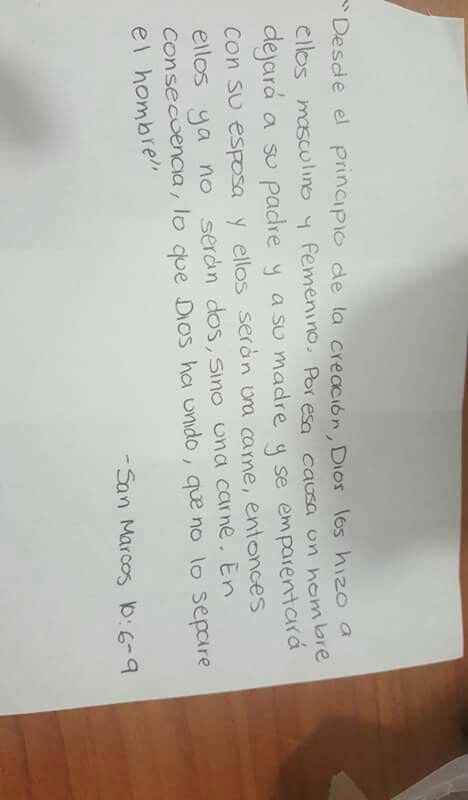 "Desde el principio de la creación, Dios los hizo a
ellos masculino y femenino. Por esa causa un hombre
dejará a su padre y a su madre y se emparentará
con su esposa y ellos serán una carne, entonces
ellos ya no serán dos, sino una carne. En
consecuencia, lo que Dios ha unido, que no lo separe
el hombre".
- San Marcos 10:6-9